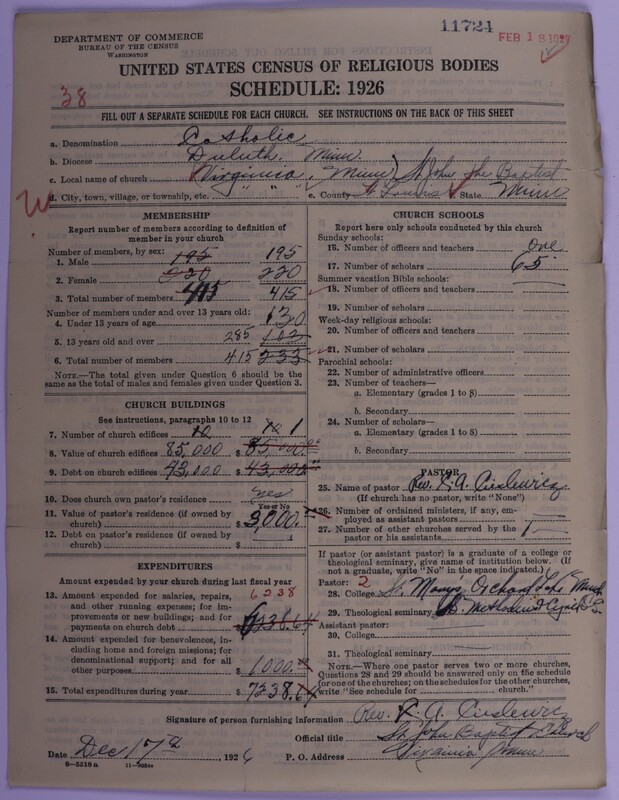 11724
FEB 18 1927
DEPARTMENT OF COMMERCE
BUREAU OF THE CENSUS
WASHINGTON
UNITED STATES CENSUS OF RELIGIOUS BODIES
SCHEDULE: 1926
38
FILL OUT A SEPARATE SCHEDULE FOR EACH CHURCH. SEE INSTRUCTIONS ON THE BACK OF THIS SHEET
a. Denomination Catholic
b. Diocese Duluth, Minn.
c. Local name of church Virginia, (Minn) St John the Baptist
d. City, town, village, or township, etc. " " " e. County St Louis State Minn
MEMBERSHIP
Report number of members according to definition of member in your church
Number of members, by sex:
1. Male 195 195
2. Female 220 220
3. Total number of members 415 415
Number of members under and over 13 years old:
4. Under 13 years of age 130
5. 13 years old and over 285 102
6. Total number of members 415 233
NOTE.—The total given under Question 6 should be the same as the total of males and females given under Question 3.
CHURCH BUILDINGS
See instructions, paragraphs 10 to 12
7. Number of church edifices 1
8. Value of church edifices 85,000 $ 85,000.00
9. Debt on church edifices 43,000 $ 43,000.00
10. Does church own pastor's residence yes
Yes or No
11. Value of pastor's residence (if owned by church) $ 3,000.
12. Debt on pastor's residence (if owned by church) $
EXPENDITURES
Amount expended by your church during last fiscal year
13. Amount expended for salaries, repairs, and other running expenses; for improvements or new buildings; and for payments on church debt 6238 $ 6238.64
14. Amount expended for benevolences, including home and foreign missions; for denominational support; and for all other purposes $ 1,000.00
15. Total expenditures during year $ 7238.64
CHURCH SCHOOLS
Report here only schools conducted by this church
Sunday schools:
16. Number of officers and teachers one
17. Number of scholars 65
Summer vacation Bible schools:
18. Number of officers and teachers
19. Number of scholars
Week-day religious schools:
20. Number of officers and teachers
21. Number of scholars
Parochial schools:
22. Number of administrative officers
23. Number of teachers—
a. Elementary (grades 1 to 8)
b. Secondary
24. Number of scholars—
a. Elementary (grades 1 to 8)
b. Secondary
PASTOR
25. Name of pastor Rev.
(If church has no pastor, write "None")
26. Number of ordained ministers, if any, employed as assistant pastors
27. Number of other churches served by the pastor or his assistants 1
If pastor (or assistant pastor) is a graduate of a college or theological seminary, give name of institution below. (If not a graduate, write "No" in the space indicated.)
Pastor: 2
28. College St. Marys, Orchard Lake Mich
29. Theological seminary
Assistant pastor:
30. College
31. Theological seminary
NOTE.—Where one pastor serves two or more churches, Questions 28 and 29 should be answered only on the schedule for one of the churches; on the schedules for the other churches, write "See schedule for ________ church."
Signature of person furnishing information Rev.
Official title St. John Baptist Church
Date Dec 17th, 1926 P. O. Address Virginia Minn
8—5318a